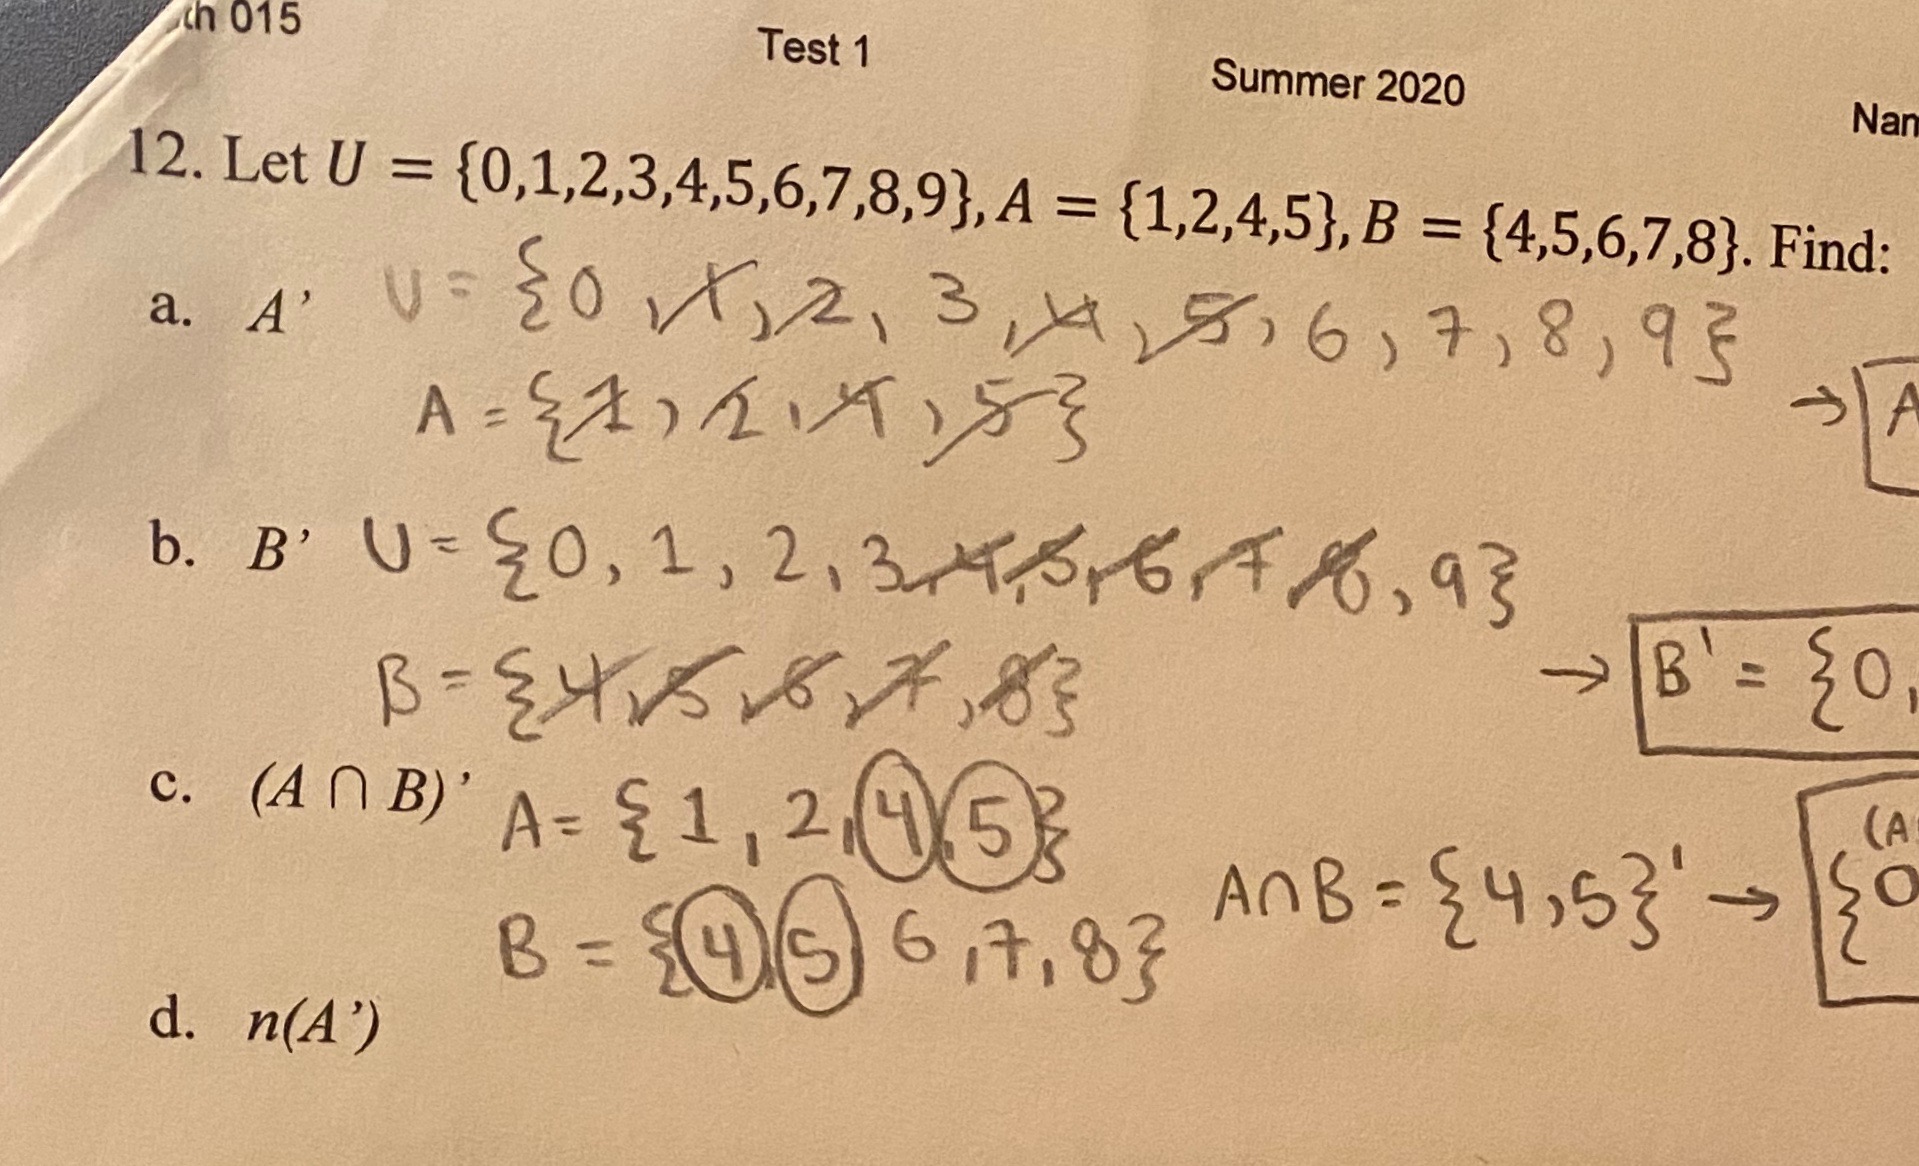 th 015
Test 1
Summer 2020
12. Let U = {0,1,2,3,4,5,6,7,8,9}, A = {1,2,4,5}, B = {4,5,6,7,8}. Find:
a. A' U = {0, 1, 2, 3, 4, 5, 6, 7, 8, 9}
A = {1, 2, 4, 5}
→ A
b. B' U = {0, 1, 2, 3, 4, 5, 6, 7, 8, 9}
B = {4, 5, 6, 7, 8}
→ B' = {0,
c. (A ∩ B)' A = {1, 2, 4, 5}
B = {4, 5 6, 7, 8}
A∩B = {4,5}' →
(A
{0
d. n(A')